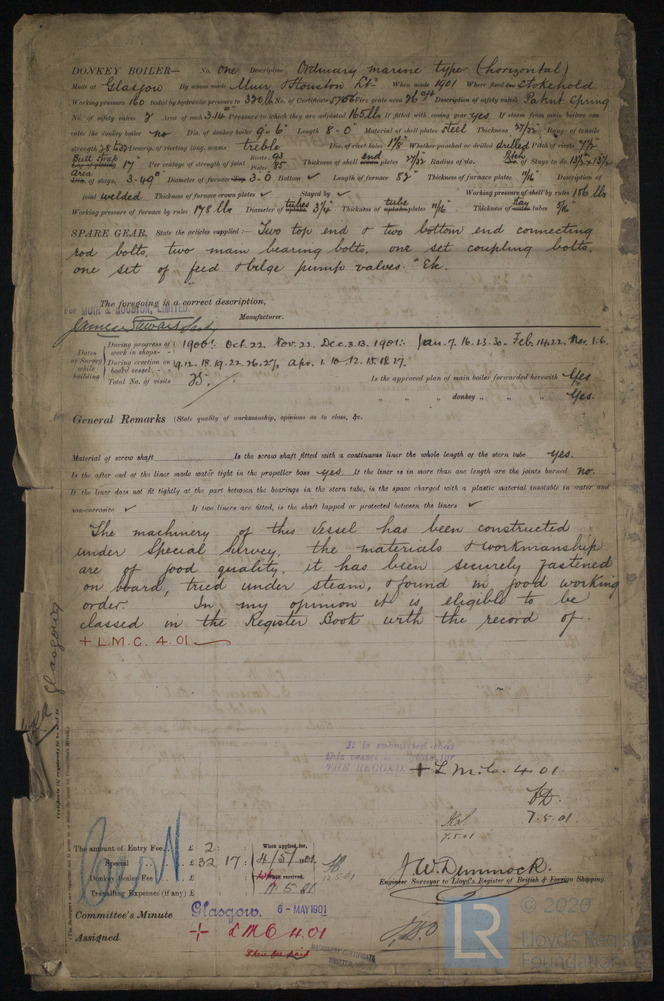 DONKEY BOILER— No. One Description Ordinary marine type (horizontal)
Made at Glasgow By whom made Muir & Houston Ltd When made 1901 Where fixed Stokehold
Working pressure 160 tested by hydraulic pressure to 320 lb No. of Certificate Fire grate area Description of safety valves Patent Spring
No. of safety valves 2 Area of each 3.14" Pressure to which they are adjusted 165 lb If fitted with easing gear yes If steam from main boilers can
enter the donkey boiler no Dia. of donkey boiler 9-6" Length 8-0" Material of shell plates steel Thickness 27/32 Range of tensile
strength Descrip. of riveting long. seams treble Dia. of rivet holes Whether punched or drilled drilled Pitch of rivets 7½"
Butt strap 17" Per centage of strength of joint Rivets Plates Thickness of shell end plates 27/32 Radius of do. Stays to do.
Area of stays, 3.49" Diameter of furnace 3-0 Bottom ✓ Length of furnace Thickness of furnace plates Description of
joint welded Thickness of furnace crown plates ✓ Stayed by ✓ Working pressure of shell by rules 186 lbs
Working pressure of furnace by rules 178 lbs Diameter of tubes 3¼" Thickness of tube plates 11/16" Thickness of stay tubes 5/16"
SPARE GEAR. State the articles supplied:— Two top end & two bottom end connecting
rod bolts, two main bearing bolts, one set coupling bolts,
one set of feed & bilge pump valves. Etc.
The foregoing is a correct description,
FOR MUIR & HOUSTON, LIMITED.
Manufacturer.
Dates of Survey while building
During progress of work in shops - - 1900: Oct. 22. Nov. 22. Dec. 3. 13. 1901: Jan. 7. 16. 23. 30. Feb. 14. 22. Mar. 1. 6.
During erection on board vessel - - - 9. 12. 18. 19. 22. 26. 27, Apr. 1. 10. 12. 15. 18. 27.
Total No. of visits 25. Is the approved plan of main boiler forwarded herewith Yes
" " " donkey " " " Yes.
General Remarks (State quality of workmanship, opinions as to class, &c.
Material of screw shaft Is the screw shaft fitted with a continuous liner the whole length of the stern tube yes.
Is the after end of the liner made water tight in the propeller boss yes. If the liner is in more than one length are the joints burned no.
If the liner does not fit tightly at the part between the bearings in the stern tube, is the space charged with a plastic material insoluble in water and
non-corrosive ✓ If two liners are fitted, is the shaft lapped or protected between the liners ✓
The machinery of this Vessel has been constructed
under Special Survey, the materials & workmanship
are of good quality. it has been securely fastened
on board, tried under steam, & found in good working
order. In my opinion it is eligible to be
classed in the Register Book with the record of
+ L.M.C. 4.01
Glasgow
It is submitted that
this vessel is eligible for
THE RECORD + L.M.C. 4.01.
7.5.01
7.5.01
The amount of Entry Fee £ 2 : When applied for,
Special £ 32 17 : 4/5/1901
Donkey Boiler Fee £ When received,
Travelling Expenses (if any) £
12.5.01
J. W. Dimmock.
Engineer Surveyor to Lloyd's Register of British & Foreign Shipping.
Committee's Minute Glasgow. 6 - MAY 1901
Assigned + LMC 4.01
MACHINERY CERTIFICATE
WRITTEN
LR
© 2020
Lloyd's Register
Foundation